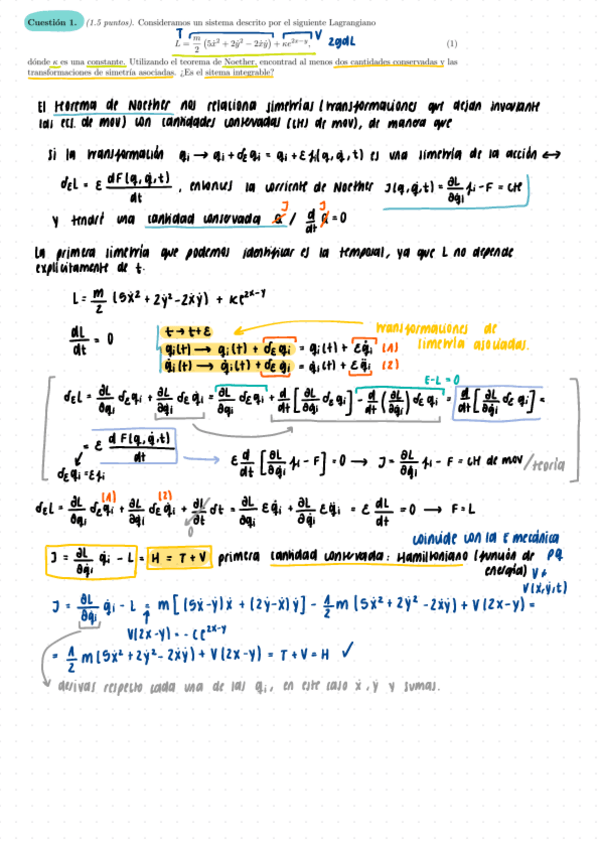 Cuestión 1. (1.5 puntos). Consideramos un sistema descrito por el siguiente Lagrangiano
T V 2gdL
L = m/2 (5ẋ² + 2ẏ² − 2ẋẏ) + κe^{2x−y}, (1)
dónde κ es una constante. Utilizando el teorema de Noether, encontrad al menos dos cantidades conservadas y las
transformaciones de simetría asociadas. ¿Es el sitema integrable?
El teorema de Noether nos relaciona simetrías (transformaciones que dejan invariante
las ecs. de mov) con cantidades conservadas (ctes de mov), de manera que
Si la transformación qi → qi + δε qi = qi + ε fi(q, q̇, t) es una simetría de la acción ↔
δεL = ε dF(q, q̇, t)/dt , entonces la corriente de Noether J(q, q̇, t) = ∂L/∂q̇i fi − F = cte
y tendré una cantidad conservada J / d/dt J = 0
La primera simetría que podemos identificar es la temporal, ya que L no depende
explícitamente de t.
L = m/2 (5ẋ² + 2ẏ² − 2ẋẏ) + κe^{2x−y}
dL/dt = 0
t → t + ε
qi(t) → qi(t) + δε qi = qi(t) + ε q̇i (1)
q̇i(t) → q̇i(t) + δε q̇i = q̇i(t) + ε q̈i (2)
transformaciones de
simetría asociadas.
E-L = 0
δεL = ∂L/∂qi δε qi + ∂L/∂q̇i δε q̇i = ∂L/∂qi δε qi + d/dt [∂L/∂q̇i δε qi] − d/dt (∂L/∂q̇i) δε qi = d/dt [∂L/∂q̇i δε qi] =
= ε dF(q, q̇, t)/dt → ε d/dt [∂L/∂q̇i fi − F] = 0 → J = ∂L/∂q̇i fi − F = cte de mov /teoría
δε qi = ε fi
δεL = ∂L/∂qi δε qi (1) + ∂L/∂q̇i δε q̇i (2) + ∂L/∂t dt = ∂L/∂qi ε q̇i + ∂L/∂q̇i ε q̈i = ε dL/dt = 0 → F = L
0
coincide con la E mecánica
J = ∂L/∂q̇i q̇i − L = H = T + V primera cantidad conservada: Hamiltoniano (función de pq
energía) V ≠
V(ẋ, ẏ, t)
J = ∂L/∂q̇i q̇i − L = m [(5ẋ − ẏ)ẋ + (2ẏ − ẋ)ẏ] − 1/2 m (5ẋ² + 2ẏ² − 2ẋẏ) + V(2x − y) =
V(2x − y) = − ce^{2x−y}
= 1/2 m (5ẋ² + 2ẏ² − 2ẋẏ) + V(2x − y) = T + V = H ✓
derivas respecto cada una de las q̇i, en este caso ẋ, ẏ y sumas.